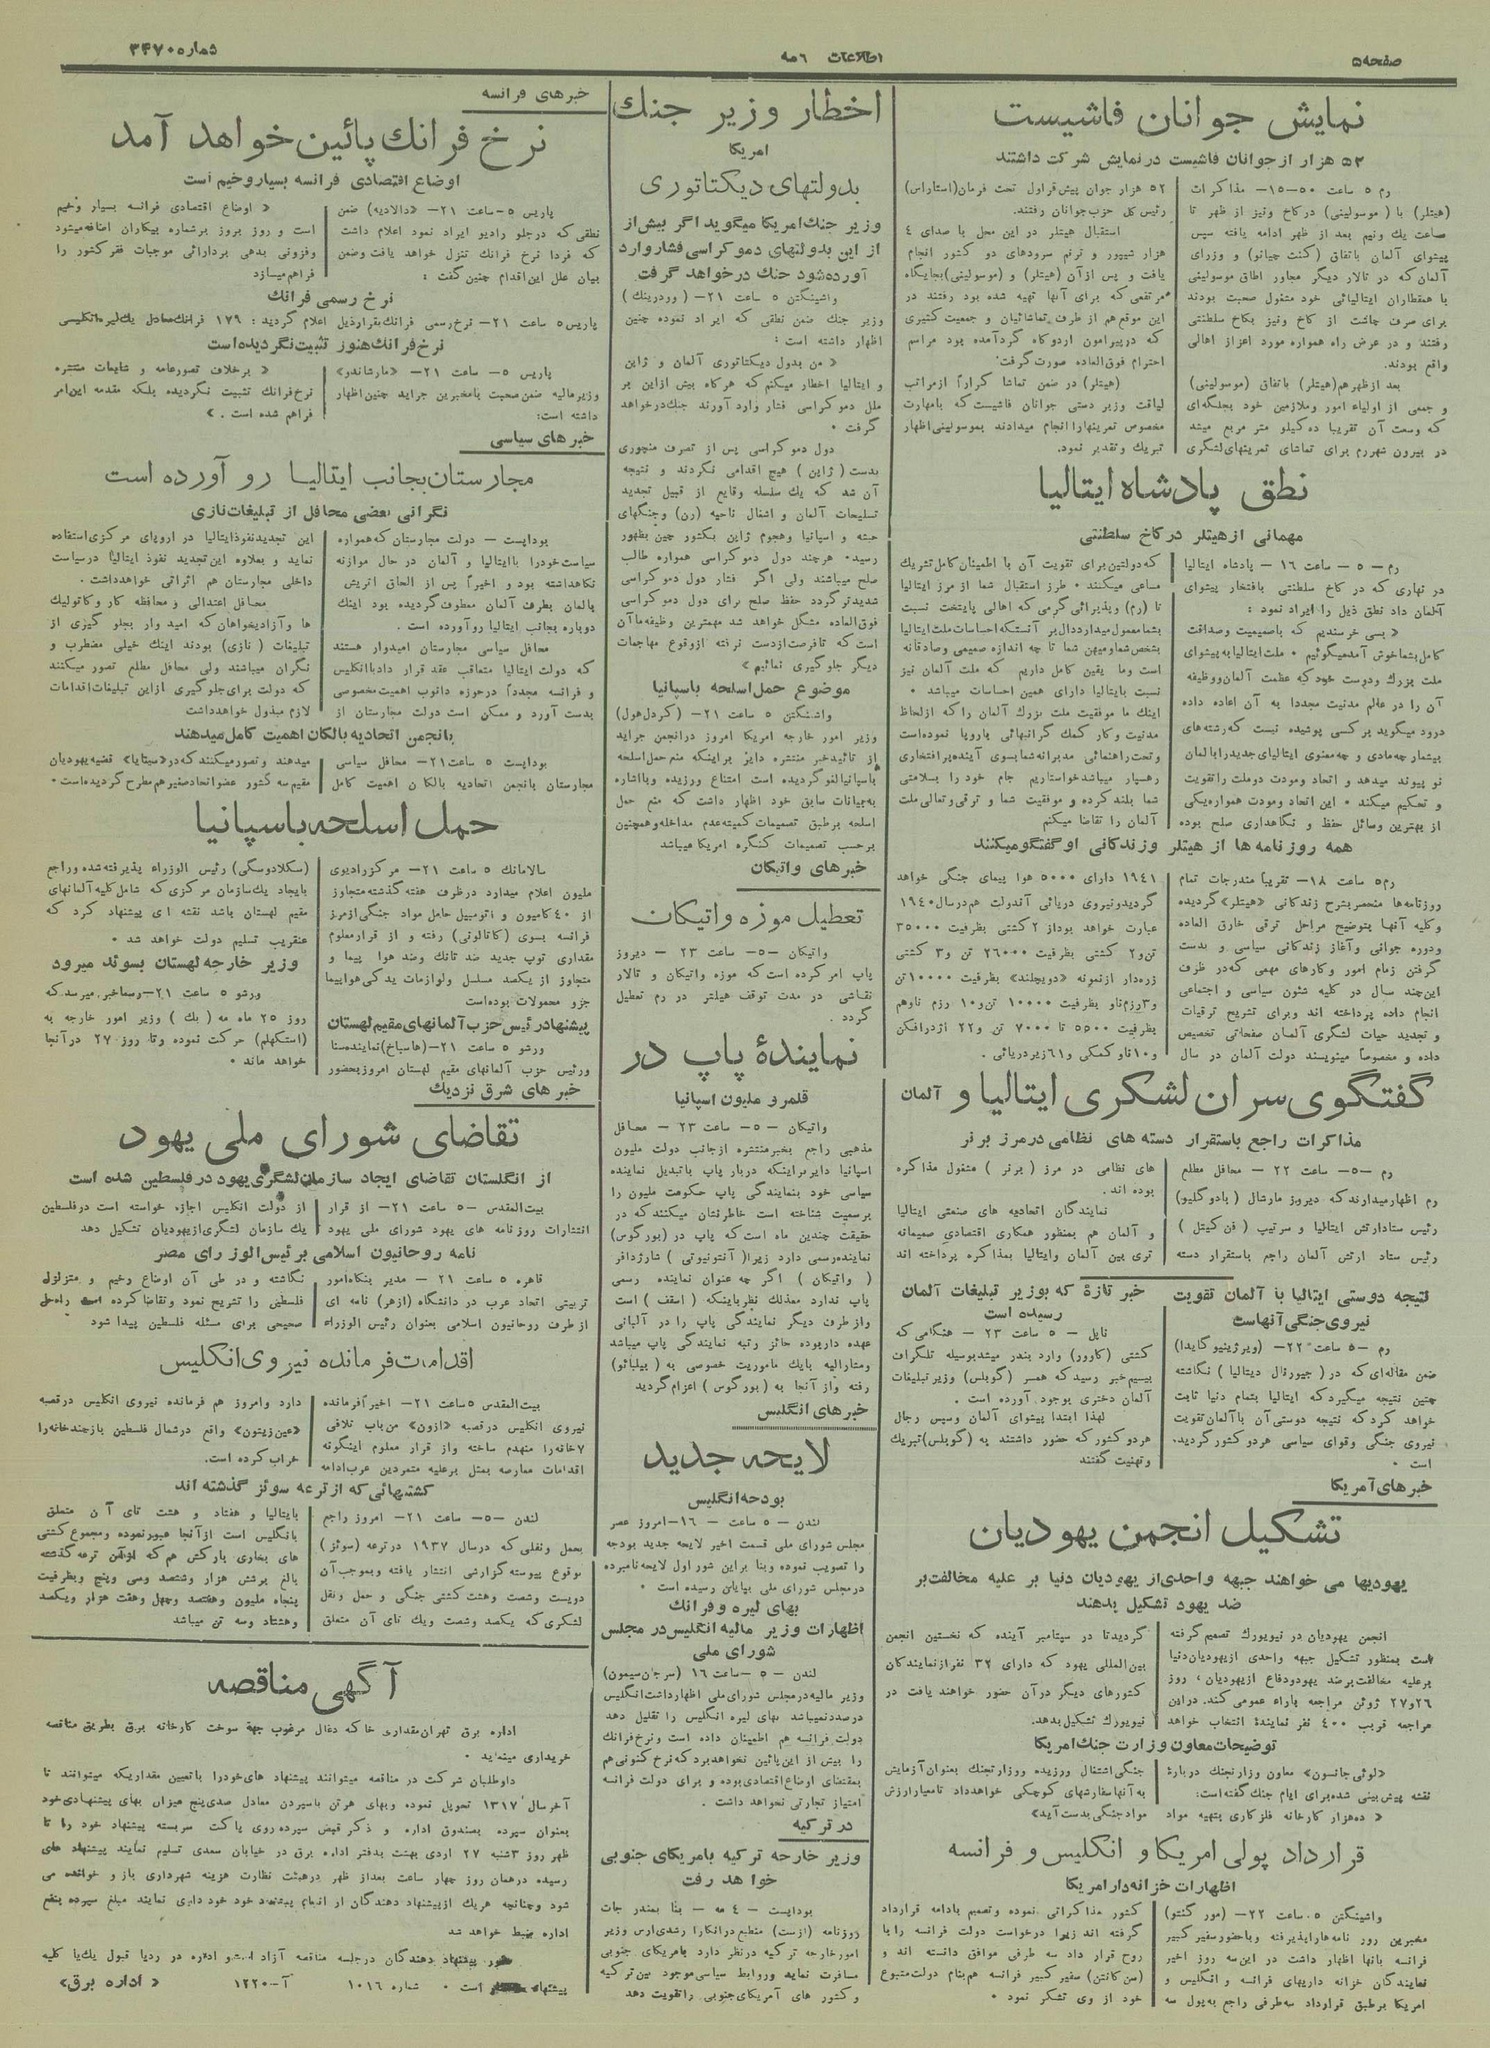 صفحه ۵
اطلاعات ۶ مه
شماره ۳۴۷۰
نمایش جوانان فاشیست
۵۲ هزار از جوانان فاشیست در نمایش شرکت داشتند
رم ۵ ساعت ۵۰-۱۵- مذاکرات
(هیتلر) با (موسولینی) در کاخ ونیز از ظهر تا
ساعت یک ونیم بعد از ظهر ادامه یافته سپس
پیشوای آلمان باتفاق (کنت چیانو) و وزرای
آلمان که در تالار دیگر مجاور اطاق موسولینی
با همقطاران ایتالیائی خود مشغول صحبت بودند
برای صرف چاشت از کاخ ونیز بکاخ سلطنتی
رفتند و در عرض راه همواره مورد اعزاز اهالی
واقع بودند.
بعد از ظهر هم (هیتلر) باتفاق (موسولینی)
و جمعی از اولیاء امور وملازمین خود بجلگه‌ای
که وسعت آن تقریبا ده کیلو متر مربع میشد
در بیرون شهر رم برای تماشای تمرینهای لشگری
۵۲ هزار جوان پیش قراول تحت فرمان (استاراس)
رئیس کل حزب جوانان رفتند.
استقبال هیتلر در این محل با صدای ٤
هزار شیپور و ترنم سرودهای دو کشور انجام
یافت و پس از آن (هیتلر) و (موسولینی) بجایگاه
مرتفعی که برای آنها تهیه شده بود رفتند در
این موقع هم از طرف تماشائیان و جمعیت کثیری
که در پیرامون اردوگاه گرد آمده بود مراسم
احترام فوق العاده صورت گرفت.
(هیتلر) در ضمن تماشا کراراً از مراتب
لیاقت وزبر دستی جوانان فاشیست که بامهارت
مخصوص تمرینهارا انجام میدادند بموسولینی اظهار
تبریک و تقدیر نمود.
نطق پادشاه ایتالیا
مهمانی از هیتلر در کاخ سلطنتی
رم - ۵ - ساعت ۱۶ - پادشاه ایتالیا
در نهاری که در کاخ سلطنتی بافتخار پیشوای
آلمان داد نطق ذیل را ایراد نمود:
« بسی خرسندیم که باصمیمیت وصداقت
کامل بشما خوش آمد میگوئیم • ملت ایتالیا به پیشوای
ملت بزرگ ودوست خود که عظمت آلمان ووظیفه
آن را در عالم مدنیت مجددا به آن اعاده داده
درود میگوید بر کسی پوشیده نیست که رشته های
بیشمار چه مادی و چه معنوی ایتالیای جدید را بآلمان
نو پیوند میدهد و اتحاد ومودت دوملت را تقویت
و تحکیم میکند • این اتحاد ومودت همواره یکی
از بهترین وسائل حفظ و نگاهداری صلح بوده
که دولتین برای تقویت آن با اطمینان کامل تشریک
مساعی میکنند • طرز استقبال شما از مرز ایتالیا
تا (رم) وپذیرائی گرمی که اهالی پایتخت نسبت
بشما معمول میدارد دال بر آنستکه احساسات ملت ایتالیا
بشخص شما ومیهن شما تا چه اندازه صمیمی وصادقانه
است وما یقین کامل داریم که ملت آلمان نیز
نسبت بایتالیا دارای همین احساسات میباشد •
اینک ما موفقیت ملت بزرگ آلمان را که از لحاظ
مدنیت وکار کمک گرانبهائی باروپا نموده است
وتحت راهنمائی مدبرانه شما بسوی آینده پر افتخاری
رهسپار میباشد خواستاریم جام خود را بسلامتی
شما بلند کرده و موفقیت شما و ترقی وتعالی ملت
آلمان را تقاضا میکنم
همه روزنامه ها از هیتلر وزندگانی او گفتگو میکنند
رم ۵ ساعت ۱۸- تقریباً مندرجات تمام
روزنامه‌ها منحصر بشرح زندگانی «هیتلر» گردیده
وکلیه آنها بتوضیح مراحل ترقی خارق العاده
ودوره جوانی وآغاز زندگانی سیاسی و بدست
گرفتن زمام امور وکارهای مهمی که در ظرف
این چند سال در کلیه شئون سیاسی و اجتماعی
انجام داده پرداخته اند وبرای تشریح ترقیات
و تجدید حیات لشگری آلمان صفحاتی تخصیص
داده و مخصوصاً مینویسند دولت آلمان در سال
۱۹٤۱ دارای ۵۰۰۰ هوا پیمای جنگی خواهد
گردید ونیروی دریائی آندولت هم در سال ۱۹٤۰
عبارت خواهد بود از ۲ کشتی بظرفیت ۳۵۰۰۰
تن و ۲ کشتی بظرفیت ۲۶۰۰۰ تن و ۳ کشتی
زره‌دار از نمونه «دویچلند» بظرفیت ۱۰۰۰۰ تن
و ۳ رزم ناو بظرفیت ۱۰۰۰۰ تن و ۱۰ رزم ناو هم
بظرفیت ۵۵۰۰ تا ۷۰۰۰ تن و ۲۲ اژدر افکن
و ۱۰ ناو کمکی و ۶۱ زیر دریائی.
گفتگوی سران لشکری ایتالیا و آلمان
مذاکرات راجع باستقرار دسته های نظامی در مرز برنر
رم -۵- ساعت ۲۲ - محافل مطلع
رم اظهار میدارند که دیروز مارشال (بادوگلیو)
رئیس ستاد ارتش ایتالیا و سرتیپ (فن کیتل)
رئیس ستاد ارتش آلمان راجع باستقرار دسته
های نظامی در مرز (برنر) مشغول مذاکره
بوده اند.
نمایندگان اتحادیه های صنعتی ایتالیا
و آلمان هم بمنظور همکاری اقتصادی صمیمانه
تری بین آلمان وایتالیا بمذاکره پرداخته اند
نتیجه دوستی ایتالیا با آلمان تقویت
نیروی جنگی آنهاست
رم -۵ ساعت ۲۲- (ویرژینیو گایدا)
ضمن مقاله‌ای که در (جیورنال دیتالیا) نگاشته
چنین نتیجه میگیرد که ایتالیا بتمام دنیا ثابت
خواهد کرد که نتیجه دوستی آن با آلمان تقویت
نیروی جنگی وقوای سیاسی هر دو کشور گردیده
است •
خبر تازه که بوزیر تبلیغات آلمان
رسیده است
ناپل - ۵ ساعت ۲۳ - هنگامی که
کشتی (کاوور) وارد بندر میشد بوسیله تلگراف
بیسیم خبر رسید که همسر (گوبلس) وزیر تبلیغات
آلمان دختری بوجود آورده است.
لهذا ابتدا پیشوای آلمان وسپس رجال
هر دو کشور که حضور داشتند به (گوبلس) تبریک
و تهنیت گفتند
خبرهای آمریکا
تشکیل انجمن یهودیان
یهودیها می خواهند جبهه واحدی از یهودیان دنیا بر علیه مخالفت بر
ضد یهود تشکیل بدهند
انجمن یهودیان در نیویورک تصمیم گرفته
است بمنظور تشکیل جبهه واحدی از یهودیان دنیا
بر علیه مخالفت بر ضد یهود و دفاع از یهودیان، روز
۲۶ و ۲۷ ژوئن مراجعه بآراء عمومی کند. در این
مراجعه قریب ٤۰۰ نفر نماینده انتخاب خواهد
گردید تا در سپتامبر آینده که نخستین انجمن
بین المللی یهود که دارای ۳۲ نفر از نمایندگان
کشورهای دیگر در آن حضور خواهند یافت در
نیویورک تشکیل بدهد.
توضیحات معاون وزارت جنگ امریکا
«لوئی جانسون» معاون وزارتجنگ درباره
نقشه پیش بینی شده برای ایام جنگ گفته است:
« ده هزار کارخانه فلزکاری بتهیه مواد
جنگی اشتغال ورزیده ووزارتجنگ بعنوان آزمایش
به آنها سفارشهای کوچکی خواهد داد تامعیار ارزش
مواد جنگی بدست آید»
قرارداد پولی امریکا و انگلیس و فرانسه
اظهارات خزانه‌دار امریکا
واشینگتن ۵. ساعت ۲۲- (مور گنتو)
مخبرین روزنامه‌ها را پذیرفته و باحضور سفیر کبیر
فرانسه بآنها اظهار داشت در این سه روز اخیر
نمایندگان خزانه داریهای فرانسه و انگلیس و
امریکا بر طبق قرارداد سه طرفی راجع به پول سه
کشور مذاکراتی نموده وتصمیم بادامه قرارداد
گرفته اند زیرا درخواست دولت فرانسه را با
روح قرار داد سه طرفی موافق دانسته اند و
(سن کانتن) سفیر کبیر فرانسه هم بنام دولت متبوع
خود از وی تشکر نمود •
اخطار وزیر جنگ
امریکا
بدولتهای دیکتاتوری
وزیر جنگ امریکا میگوید اگر بیش از
از این بدولتهای دموکراسی فشار وارد
آورده شود جنگ در خواهد گرفت
واشینگتن ۵ ساعت ۲۱- (وودرینک)
وزیر جنگ ضمن نطقی که ایراد نموده چنین
اظهار داشته است:
« من بدول دیکتاتوری آلمان و ژاپن
و ایتالیا اخطار میکنم که هرگاه بیش از این بر
ملل دموکراسی فشار وارد آورند جنگ در خواهد
گرفت •
دول دموکراسی پس از تصرف منچوری
بدست (ژاپن) هیچ اقدامی نکردند و نتیجه
آن شد که یک سلسله وقایع از قبیل تجدید
تسلیحات آلمان و اشغال ناحیه (رن) وجنگهای
حبشه و اسپانیا وهجوم ژاپن بکشور چین بظهور
رسید. هر چند دول دموکراسی همواره طالب
صلح میباشند ولی اگر فشار دول دموکراسی
شدیدتر گردد حفظ صلح برای دول دموکراسی
فوق العاده مشکل خواهد شد مهمترین وظیفه ما آن
است که تا فرصت از دست نرفته از وقوع مهاجمات
دیگر جلوگیری نمائیم»
موضوع حمل اسلحه باسپانیا
واشنگتن ۵ ساعت ۲۱- (کردل هول)
وزیر امور خارجه امریکا امروز در انجمن جراید
از تائید خبر منتشره دایر بر اینکه منع حمل اسلحه
باسپانیا لغو گردیده است امتناع ورزیده وبااشاره
به بیانات سابق خود اظهار داشت که منع حمل
اسلحه بر طبق تصمیمات کمیته عدم مداخله وهمچنین
بر حسب تصمیمات کنگره امریکا میباشد
خبرهای واتیکان
تعطیل موزه واتیکان
واتیکان -۵- ساعت ۲۳ - دیروز
پاپ امر کرده است که موزه واتیکان و تالار
نقاشی در مدت توقف هیتلر در رم تعطیل
گردد.
نمایندهٔ پاپ در
قلمرو ملیون اسپانیا
واتیکان -۵- ساعت ۲۳ - محافل
مذهبی راجع بخبر منتشره ازجانب دولت ملیون
اسپانیا دایر بر اینکه دربار پاپ باتبدیل نماینده
سیاسی خود بنمایندگی پاپ حکومت ملیون را
برسمیت شناخته است خاطرنشان میکنند که در
حقیقت چندین ماه است که پاپ در (بورگوس)
نماینده رسمی دارد زیرا (آنتونیوتی) شارژدافر
(واتیکان) اگر چه عنوان نماینده رسمی
پاپ ندارد معذلک نظر باینکه (اسقف) است
واز طرف دیگر نمایندگی پاپ را در آلبانی
عهده دار بوده حائز رتبه نمایندگی پاپ میباشد
ومشارالیه بایک ماموریت خصوصی به (بیلبائو)
رفته واز آنجا به (بورگوس) اعزام گردید
خبرهای انگلیس
لایحه جدید
بودجه انگلیس
لندن - ۵ ساعت - ۱۶- امروز عصر
مجلس شورای ملی قسمت اخیر لایحه جدید بودجه
را تصویب نموده وبنا بر این شور اول لایحه نامبرده
در مجلس شورای ملی بپایان رسیده است •
بهای لیره و فرانک
اظهارات وزیر مالیه انگلیس در مجلس
شورای ملی
لندن - ۵ - ساعت ۱۶ (سرجان سیمون)
وزیر مالیه در مجلس شورای ملی اظهار داشت انگلیس
درصدد نمیباشد بهای لیره انگلیس را تقلیل دهد
دولت فرانسه هم اطمینان داده است ونرخ فرانک
را بیش از این پائین نخواهد برد که نرخ کنونی هم
بمقتضای اوضاع اقتصادی بوده و برای دولت فرانسه
امتیاز تجارتی نخواهد داشت.
در ترکیه
وزیر خارجه ترکیه بامریکای جنوبی
خواهد رفت
بوداپست - ٤ مه - بنا بمندرجات
روزنامه (ازست) منطبع در انکارا رشدی ارس وزیر
امور خارجه ترکیه در نظر دارد بامریکای جنوبی
مسافرت نماید وروابط سیاسی موجود بین ترکیه
وکشور های آمریکای جنوبی را تقویت دهد
خبرهای فرانسه
نرخ فرانک پائین خواهد آمد
اوضاع اقتصادی فرانسه بسیار وخیم است
پاریس ۵-ساعت ۲۱- «دالادیه» ضمن
نطقی که در جلو رادیو ایراد نمود اعلام داشت
که فردا نرخ فرانک تنزل خواهد یافت وضمن
بیان علل این اقدام چنین گفت:
« اوضاع اقتصادی فرانسه بسیار وخیم
است و روز بروز بر شماره بیکاران اضافه میشود
وفزونی بدهی بر دارائی موجبات فقر کشور را
فراهم میسازد
نرخ رسمی فرانک
پاریس ۵ ساعت ۲۱- نرخ رسمی فرانک بقرار ذیل اعلام گردید: ۱۷۹ فرانک معادل یک لیره انگلیسی
نرخ فرانک هنوز تثبیت نگردیده است
پاریس ۵- ساعت ۲۱- «مارشاندر»
وزیر مالیه ضمن صحبت بامخبرین جراید چنین اظهار
داشته است:
« برخلاف تصور عامه و شایعات منتشره
نرخ فرانک تثبیت نگردیده بلکه مقدمه این امر
فراهم شده است. »
خبرهای سیاسی
مجارستان بجانب ایتالیا رو آورده است
نگرانی بعضی محافل از تبلیغات نازی
بوداپست - دولت مجارستان که همواره
سیاست خود را با ایتالیا و آلمان در حال موازنه
نگاهداشته بود و اخیراً پس از الحاق اتریش
بآلمان بطرف آلمان معطوف گردیده بود اینک
دوباره بجانب ایتالیا روآورده است.
محافل سیاسی مجارستان امیدوار هستند
که دولت ایتالیا متعاقب عقد قرارداد باانگلیس
و فرانسه مجدداً در حوزه دانوب اهمیت مخصوصی
بدست آورد و ممکن است دولت مجارستان از
این تجدید نفوذ ایتالیا در اروپای مرکزی استفاده
نماید و بعلاوه این تجدید نفوذ ایتالیا در سیاست
داخلی مجارستان هم اثراتی خواهد داشت.
محافل اعتدالی و محافظه کار و کاتولیک
ها و آزادیخواهان که امید وار بجلو گیری از
تبلیغات (نازی) بودند اینک خیلی مضطرب و
نگران میباشند ولی محافل مطلع تصور میکنند
که دولت برای جلوگیری ازاین تبلیغات اقدامات
لازم مبذول خواهد داشت
بانجمن اتحادیه بالکان اهمیت کامل میدهند
بوداپست ۵ ساعت ۲۱- محافل سیاسی
مجارستان بانجمن اتحادیه بالکان اهمیت کامل
میدهند وتصور میکنند که در «سینایا» قضیه یهودیان
مقیم سه کشور عضو اتحاد صغیر هم مطرح گردیده است •
حمل اسلحه باسپانیا
سالامانک ۵ ساعت ۲۱- مرکز رادیوی
ملیون اعلام میدارد در ظرف هفته گذشته متجاوز
از ٤۰ کامیون و اتومبیل حامل مواد جنگی از مرز
فرانسه بسوی (کاتالونی) رفته و از قرار معلوم
مقداری توپ جدید ضد تانک وضد هوا پیما و
متجاوز از یکصد مسلسل ولوازمات یدکی هواپیما
جزو محمولات بوده است
پیشنهاد رئیس حزب آلمانهای مقیم لهستان
ورشو ۵ ساعت ۲۱- (هاسباخ) نماینده سنا
ورئیس حزب آلمانهای مقیم لهستان امروز بحضور
(سکلادوسکی) رئیس الوزراء پذیرفته شده وراجع
بایجاد یک سازمان مرکزی که شامل کلیه آلمانهای
مقیم لهستان باشد نقشه ای پیشنهاد کرد که
عنقریب تسلیم دولت خواهد شد •
وزیر خارجه لهستان بسوئد میرود
ورشو ۵ ساعت ۲۱- رسما خبر میرسد که
روز ۲۵ ماه مه (بک) وزیر امور خارجه به
(استکهلم) حرکت نموده وتا روز ۲۷ در آنجا
خواهد ماند •
خبرهای شرق نزدیک
تقاضای شورای ملی یهود
از انگلستان تقاضای ایجاد سازمان لشگری یهود در فلسطین شده است
بیت المقدس -۵ ساعت ۲۱- از قرار
انتشارات روزنامه های یهود شورای ملی یهود
از دولت انگلیس اجازه خواسته است در فلسطین
یک سازمان لشگری از یهودیان تشکیل دهد
نامه روحانیون اسلامی برئیس الوزرای مصر
قاهره ۵ ساعت ۲۱ - مدیر بنگاه امور
تربیتی اتحاد عرب در دانشگاه (ازهر) نامه ای
از طرف روحانیون اسلامی بعنوان رئیس الوزراء
نگاشته و در طی آن اوضاع وخیم و متزلزل
فلسطین را تشریح نمود وتقاضا کرده است راه حل
صحیحی برای مسئله فلسطین پیدا شود
اقدامات فرمانده نیروی انگلیس
بیت المقدس ۵ ساعت ۲۱- اخیراً فرمانده
نیروی انگلیس در قصبه «ازون» من باب تلافی
۷ خانه را منهدم ساخته واز قرار معلوم اینگونه
اقدامات معارضه بمثل بر علیه متمردین عرب ادامه
دارد وامروز هم فرمانده نیروی انگلیس در قصبه
«عین زیتون» واقع در شمال فلسطین باز چند خانه را
خراب کرده است.
کشتیهائی که از ترعه سوئز گذشته اند
لندن -۵- ساعت ۲۱- امروز راجع
بحمل ونقلی که در سال ۱۹۳۷ در ترعه (سوئز)
بوقوع پیوسته گزارشی انتشار یافته وبموجب آن
دویست وشصت وهشت کشتی جنگی و حمل ونقل
لشکری که یکصد وشصت ویک تای آن متعلق
بایتالیا و هفتاد و هشت تای آن متعلق
بانگلیس است از آنجا عبور نموده ومجموع کشتی
های بخاری بارکش هم که از این ترعه گذشته
بالغ برشش هزار وششصد وسی وپنج وبظرفیت
پنجاه ملیون وهفتصد وچهل وهفت هزار ویکصد
وهشتاد وسه تن میباشد
آگهی مناقصه
اداره برق تهران مقداری خاکه ذغال مرغوب جهة سوخت کارخانه برق بطریق مناقصه
خریداری مینماید •
داوطلبان شرکت در مناقصه میتوانند پیشنهاد های خود را باتعیین مقداریکه میتوانند تا
آخر سال ۱۳۱۷ تحویل نموده وبهای هر تن باسپردن معادل صدی پنج میزان بهای پیشنهادی خود
بعنوان سپرده بصندوق اداره و ذکر قبض سپرده روی پاکت سربسته پیشنهاد خود را تا
ظهر روز ۳شنبه ۲۷ اردی بهشت بدفتر اداره برق در خیابان سعدی تسلیم نمایند پیشنهاد های
رسیده در همان روز چهار ساعت بعد از ظهر در هیئت نظارت هزینه شهرداری باز و خوانده می
شود وچنانچه هریک از پیشنهاد دهندگان از انجام پیشنهاد خود خود داری نمایند مبلغ سپرده بنفع
اداره ضبط خواهد شد
حضور پیشنهاد دهندگان در جلسه مناقصه آزاد است و اداره در رد یا قبول یک یا کلیه
پیشنهاد است • شماره ۱۰۱۶ آ-۱۲۲۰ « اداره برق»